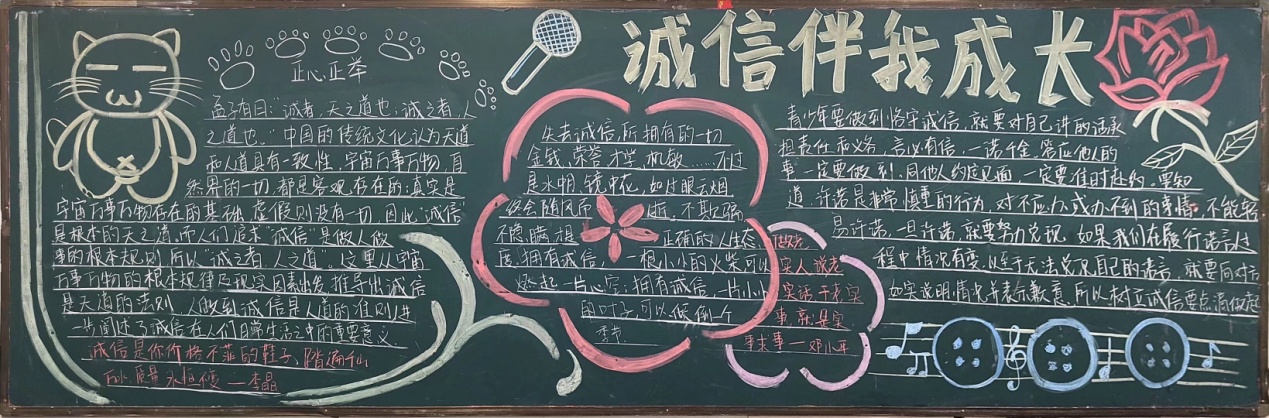 诚信伴我成长
正心正举
孟子有曰:“诚者,天之道也;诚之者,人
之道也。”中国的传统文化认为天道
和人道具有一致性,宇宙万事万物,自
然界的一切都是客观存在的,真实是
宇宙万事万物存在的基础,虚假则没有一切。因此“诚信
是根本的天之道,而人们追求“诚信”是做人做
事的根本规则,所以“诚之者,人之道”。这里从宇宙
万事万物的根本规律及现实因素出发,推导出诚信
是天道的法则,人做到诚信是人道的准则,进
一步阐述了诚信在人们日常生活之中的重要意义
诚信是你价格不菲的鞋子,踏遍千山
质量永恒 — 李晶
失去诚信,所拥有的一切
金钱、荣誉、才学、机敏……不过
是水中月,镜中花,如过眼云烟
终会随风而逝。不欺骗
不隐瞒,想 正确的人生态
度。拥有诚信,一根小小的火柴可以
燃起一片心空;拥有诚信,一片小小
的叶子,可以倾倒一个
季节
实人,说老
实话,干老实
事,就是实
事求事 — 邓小平
青少年要做到恪守诚信,就要对自己讲的话承
担责任和义务,言必有信,一诺千金。答应他人的
事,一定要做到,同他人约定见面,一定要准时赴约。要知
道,许诺是非常慎重的行为,对不应办或办不到的事情,不能轻
易许诺,一旦许诺,就要努力兑现。如果我们在履行诺言过
程中情况有变,以至于无法兑现自己的诺言,就要向对方
如实说明情况并表示歉意,所以树立诚信要点滴做起